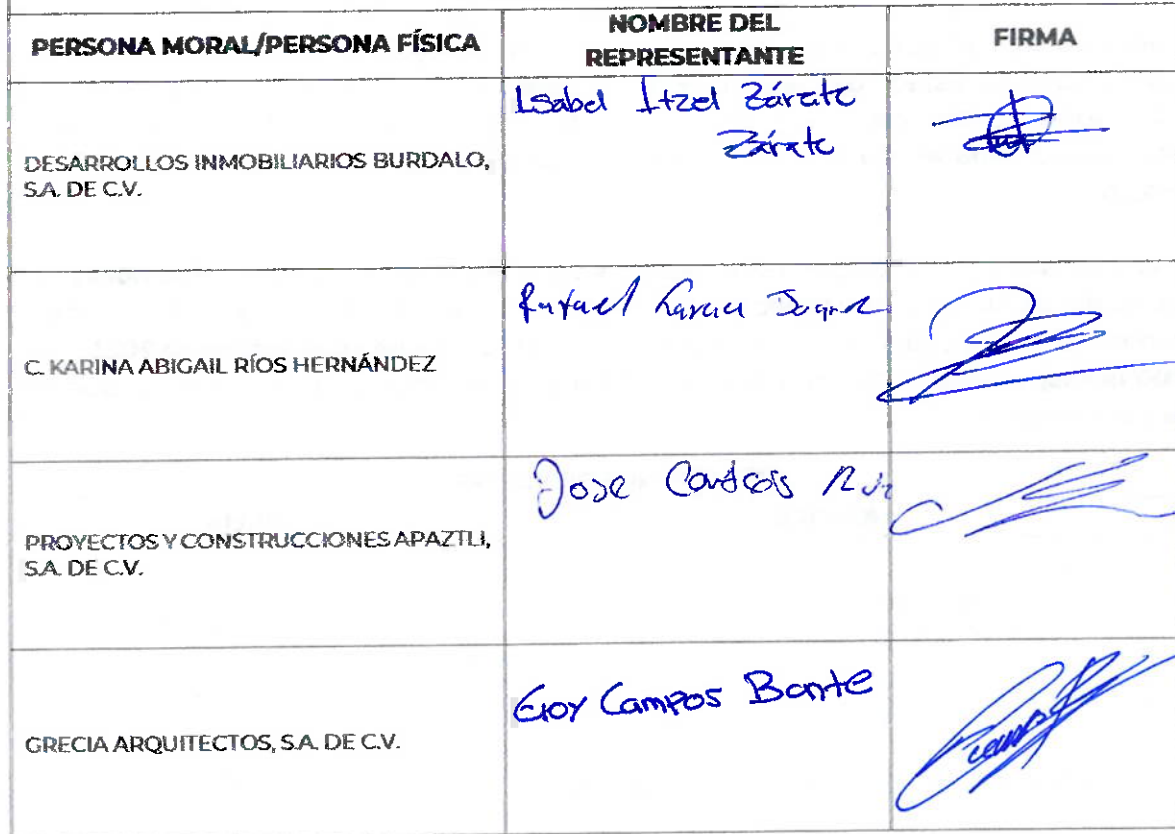 PERSONA MORAL/PERSONA FÍSICA
NOMBRE DEL
REPRESENTANTE
FIRMA
DESARROLLOS INMOBILIARIOS BURDALO,
S.A. DE C.V.
Isabel Itzel Zárate
Zárate
C. KARINA ABIGAIL RÍOS HERNÁNDEZ
Rafael
PROYECTOS Y CONSTRUCCIONES APAZTLI,
S.A. DE C.V.
Jose
GRECIA ARQUITECTOS, S.A. DE C.V.
Campos